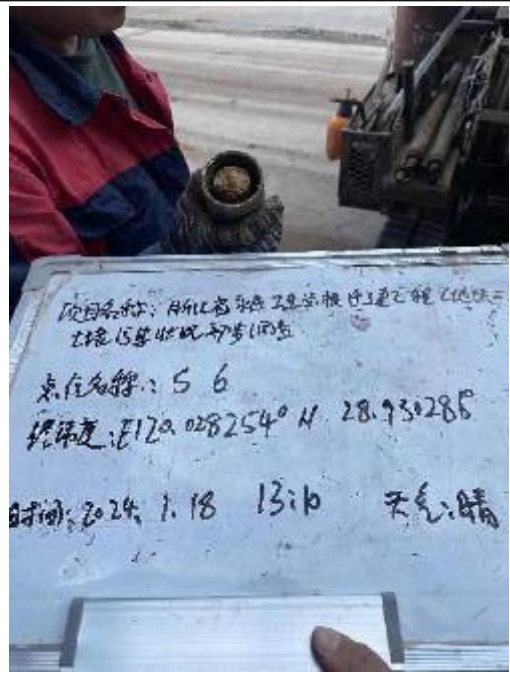 项目名称：浙江省永康卫生学校迁建工程（地块二
土壤污染状况初步调查
点位名称：S 6
经纬度：E120.028254° N 28.930286°
时间：2024. 1. 18 13:10 天气：晴